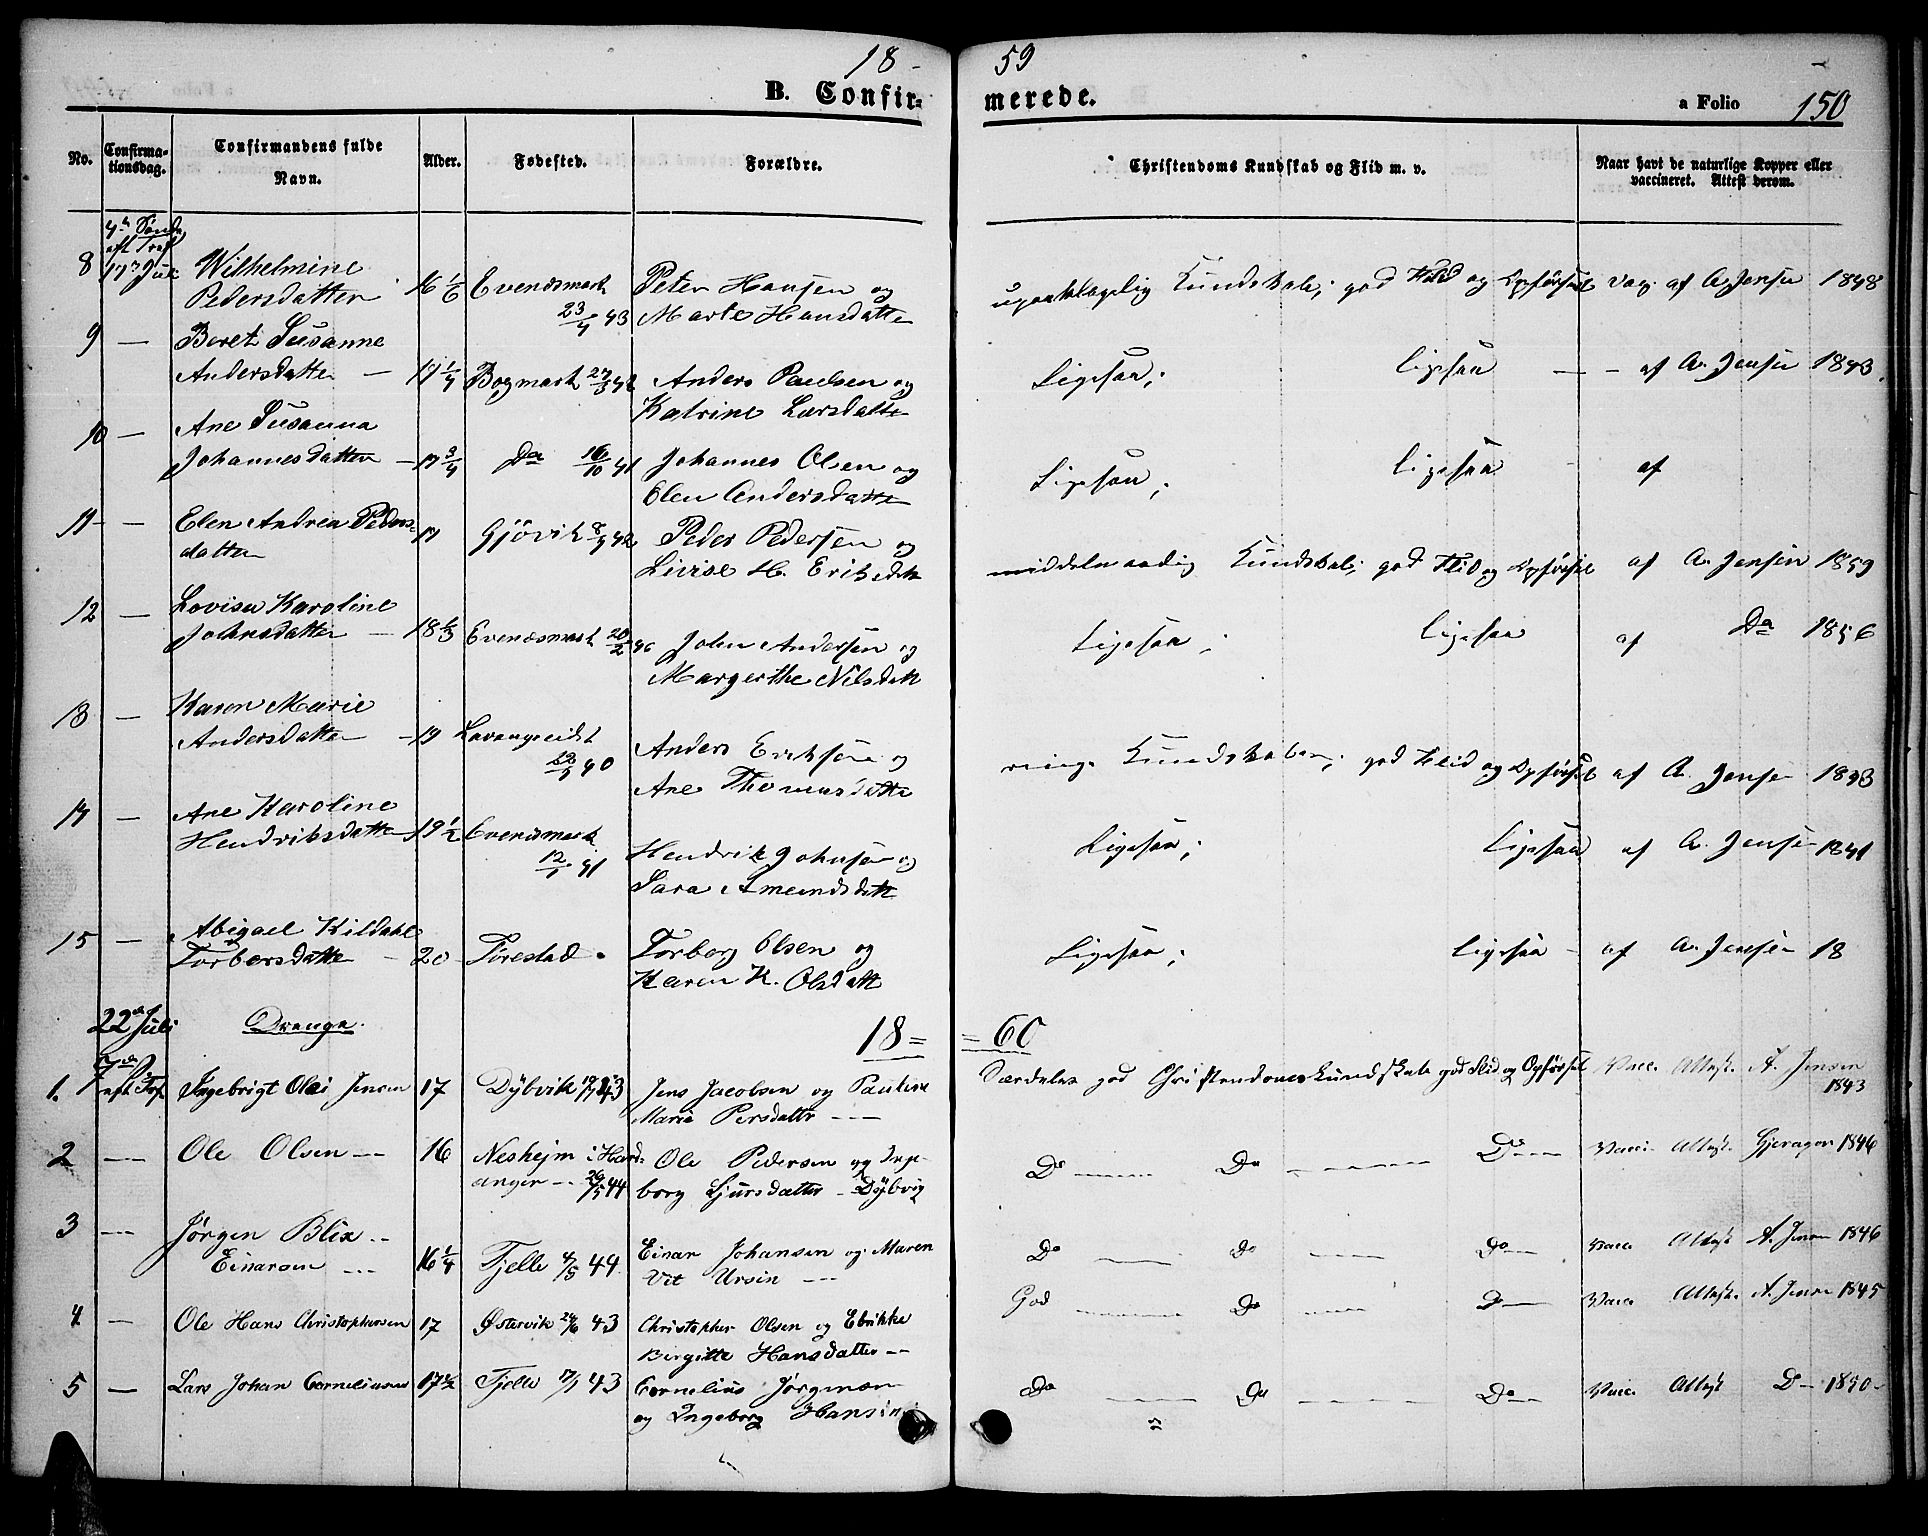 18 - 59
B. Confirmerede.
a Folio 150
No. Confirmationsdag. Confirmandens fulde Navn. Alder. Fødested. Forældre. Christendoms Kundskab og Flid m. v. Naar havt de naturlige Kopper eller vaccineret. Attest derom.
4de Sønd.
eft Tref
8 17de Juli Wilhelmine
Pedersdatter 16 1/6 Evenesmark Peter Hansen og
23/4 43 Marte Hansdatter
upaaklagelig Kundskab; god Flid og Opførsel vac. af A. Jensen 1848
9 — Beret Susanne
Andersdatter — 17 1/4 Bogmark 27/3 42 Anders Paulsen og
Katrine Larsdatter
Ligesaa; ligesaa — - af A. Jensen 1843.
10 — Ane Susanna
Johannesdatter — 17 3/4 Do 16/10 41 Johannes Olsen og
Elen Andersdatter
Ligesaa; ligesaa - af
11 - — Elen Andrea Peders-
datter 17 Gjövik 8/4 42 Peder Pedersen og
Livise H. Eriksdatt
middelmaadig Kundskab; god Flid og Opførsel af A. Jensen 1859
12 — Lovisa Karoline
Johnsdatter — 18 1/3 Evenesmark 20/2 John Andersen og
Margerthe Nilsdatt
Ligesaa; ligesaa af Do 1856
13 — Karen Marie
Andersdatter — 19 Lavangseidet
40 Anders Eriksen og
Ane Thomasdatter
ringe Kundskaber; god Flid og Opførsel af A. Jensen 1843
14 — Ane Karoline
Hendriksdatter 19 1/2 Evenesmark
41 Hendrik Johnsen og
Sara Amundsdatt
Ligesaa; Ligesaa af A. Jensen 1841
15 — Abigael Kildahl
Torbersdatter — 20 Tørestad - Torberg Olsen og
Karen K. Olsdatt
Ligesaa; ligesaa - af A. Jensen 18
22de Juli Drenge. 18 = = 60
7de S.
eft Tref.
1. Ingebrigt Olai Jensen 17 Dÿbvik 43 Jens Jacobsen og Pauline
Marie Persdatter ---
Særdeles god Christendomskundskab god Flid og Opførsel Vacc. Attest. A. Jensen
1843
2 --- Ole Olsen --- 16 Neshejm i Hard-
anger -- 26/5 44 Ole Pedersen og Inge-
borg Sjursdatter - Dÿbvig
Do ---- Do ---- Do --- Vacci. Attest. Gjeragor 1846
3 --- Jørgen Blix --
Einarsen --- 16 1/4 Fjelle 4/5 44 Einar Johansen og Maren
Vit Ursin ---
Do ---- Do ---- Do --- Vacc. Attest A. Jensen 1846
4 — Ole Hans Christophersen 17 Østervik 24/6 43 Christopher Olsen og Ebrikke
Birgitte Hansdatter --
God ---- Do ---- Do --- Vacc. Attest. A. Jensen 1845
5 — Lars Johan Corneliussen 17 1/2 Fjelle 17/1 43 Cornelius Jørgensen
og Ingeborg Hansin
Do ---- Do ---- Do --- Vacc. Attest D - 1850 -